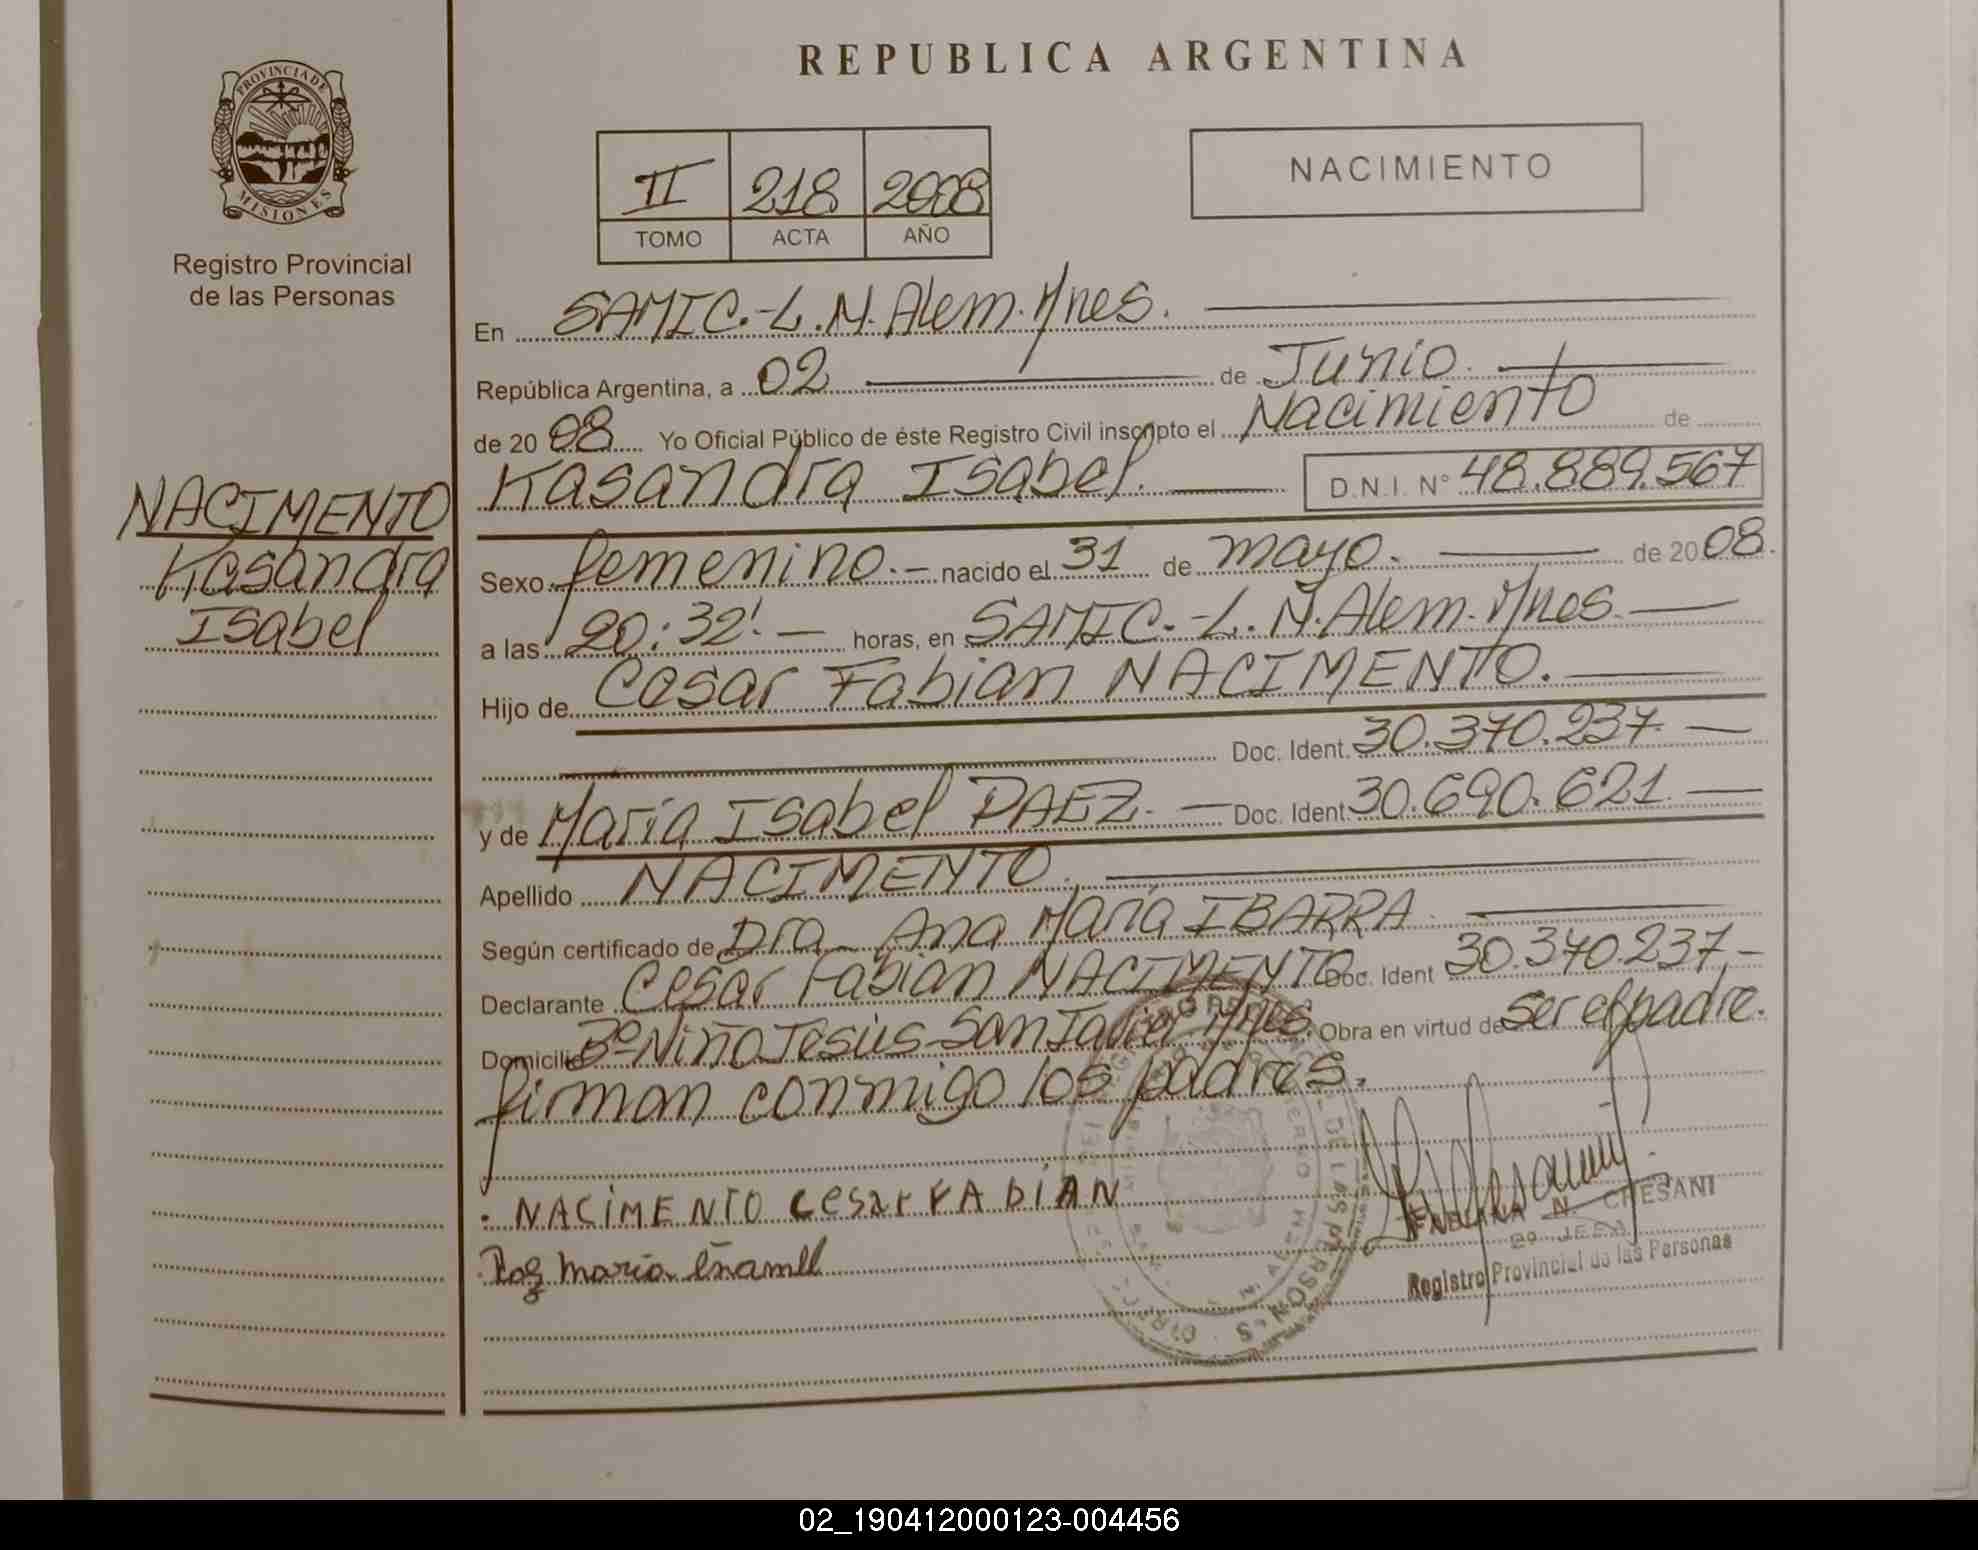 REPUBLICA ARGENTINA
PROVINCIA DE MISIONES
Registro Provincial
de las Personas
II 218 2008
TOMO ACTA AÑO
NACIMIENTO
En SAMIC.-L.N.Alem.Mnes.
República Argentina, a 02 de Junio.
de 2008 Yo Oficial Público de éste Registro Civil inscripto el Nacimiento de
Kasandra Isabel. D.N.I. N° 48.889.567
NACIMENTO
Kasandra
Isabel
Sexo femenino.- nacido el 31 de mayo. de 2008.
a las 20:32'.- horas, en SAMIC.-L.N.Alem.Mnes.
Hijo de Cesar Fabian NACIMENTO.
Doc. Ident. 30.370.237.-
y de María Isabel PAEZ.- Doc. Ident. 30.690.621.-
Apellido NACIMENTO.
Según certificado de Dra. Ana María IBARRA
Declarante Cesar Fabian NACIMENTO Doc. Ident 30.370.237,-
Domicilio Bº Niño Jesús-San Javier Mnes. Obra en virtud de ser el padre.
firman conmigo los padres.
. NACIMENTO Cesar FABIAN
Paez maria
N. CHESANI
Registro Provincial de las Personas
02_190412000123-004456